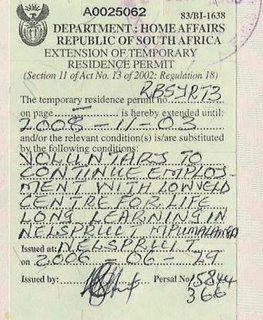 A0025062
83/BI-1638
DEPARTMENT : HOME AFFAIRS
REPUBLIC OF SOUTH AFRICA
EXTENSION OF TEMPORARY
RESIDENCE PERMIT
(Section 11 of Act No. 13 of 2002: Regulation 18)
The temporary residence permit no. RBSYRT3
on page 5 is hereby extended until
2008-11-03
and/or the relevant condition(s) is/are substituted
by the following conditions:
VOLUNTARY TO
CONTINUE EMPLOY
MENT WITH LOWVELD
CENTRE FOR LIFE
LONG LEARNING IN
NELSPRUIT, MPUMALANGA
Issued at: NELSPRUIT
on 2006-06-29
Issued by: Persal No 15844
366